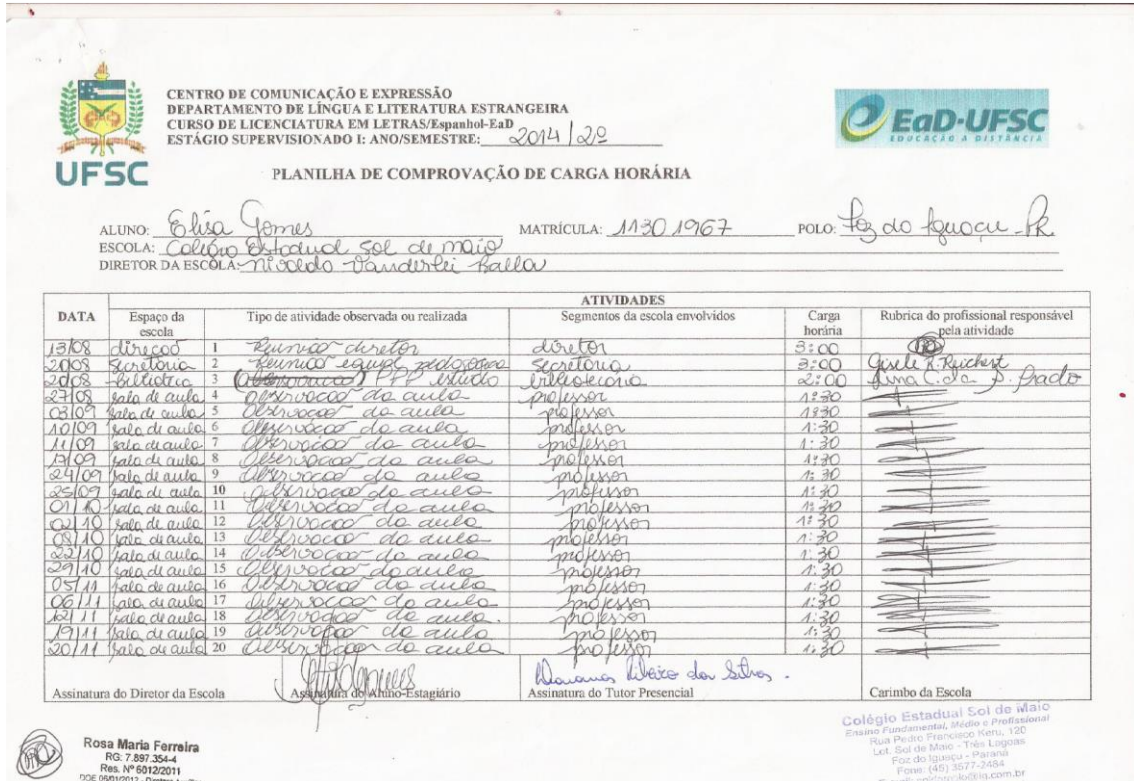 CENTRO DE COMUNICAÇÃO E EXPRESSÃO
DEPARTAMENTO DE LÍNGUA E LITERATURA ESTRANGEIRA
CURSO DE LICENCIATURA EM LETRAS/Espanhol-EaD
ESTÁGIO SUPERVISIONADO I: ANO/SEMESTRE: 2014/2º
UFSC
EaD-UFSC
EDUCAÇÃO A DISTÂNCIA
PLANILHA DE COMPROVAÇÃO DE CARGA HORÁRIA
ALUNO: Elisa Gomes MATRÍCULA: 11301967 POLO: Foz do Iguaçu-Pr.
ESCOLA: Colégio Estadual Sol de maio
DIRETOR DA ESCOLA: Nivaldo Vanderlei
ATIVIDADES
DATA Espaço da escola Tipo de atividade observada ou realizada Segmentos da escola envolvidos Carga horária Rubrica do profissional responsável pela atividade
13/08 direção 1 Reunião diretor diretor 3:00
20/08 Secretaria 2 Reunião equipe pedagógica Secretaria 3:00 Gisele R. Reichert
20/08 biblioteca 3 PPP estudo bibliotecaria 2:00 C. da S. Prado
27/08 sala de aula 4 Observação da aula professor 1:30
03/09 sala de aula 5 Observação da aula professor 1:30
10/09 sala de aula 6 Observação da aula professor 1:30
11/09 sala de aula 7 Observação da aula professor 1:30
17/09 sala de aula 8 Observação da aula professor 1:30
24/09 sala de aula 9 Observação da aula professor 1:30
25/09 sala de aula 10 Observação da aula professor 1:30
01/10 sala de aula 11 Observação da aula professor 1:30
02/10 sala de aula 12 Observação da aula professor 1:30
08/10 sala de aula 13 Observação da aula professor 1:30
22/10 sala de aula 14 Observação da aula professor 1:30
29/10 sala de aula 15 Observação da aula professor 1:30
05/11 sala de aula 16 Observação da aula professor 1:30
06/11 sala de aula 17 Observação da aula professor 1:30
12/11 sala de aula 18 Observação da aula. professor 1:30
19/11 sala de aula 19 Observação da aula professor 1:30
20/11 sala de aula 20 Observação da aula professor 1:30
Ribeiro da Silva.
Assinatura do Diretor da Escola Assinatura do Aluno-Estagiário Assinatura do Tutor Presencial Carimbo da Escola
Rosa Maria Ferreira
RG: 7.897.354-4
Res. Nº 6012/2011
Colégio Estadual Sol de Maio
Ensino Fundamental, Médio e Profissional
Rua Pedro Francisco Keru, 120
Lot. Sol de Maio - Três Lagoas
Foz do Iguaçu - Paraná
Fone: (45) 3577-2484